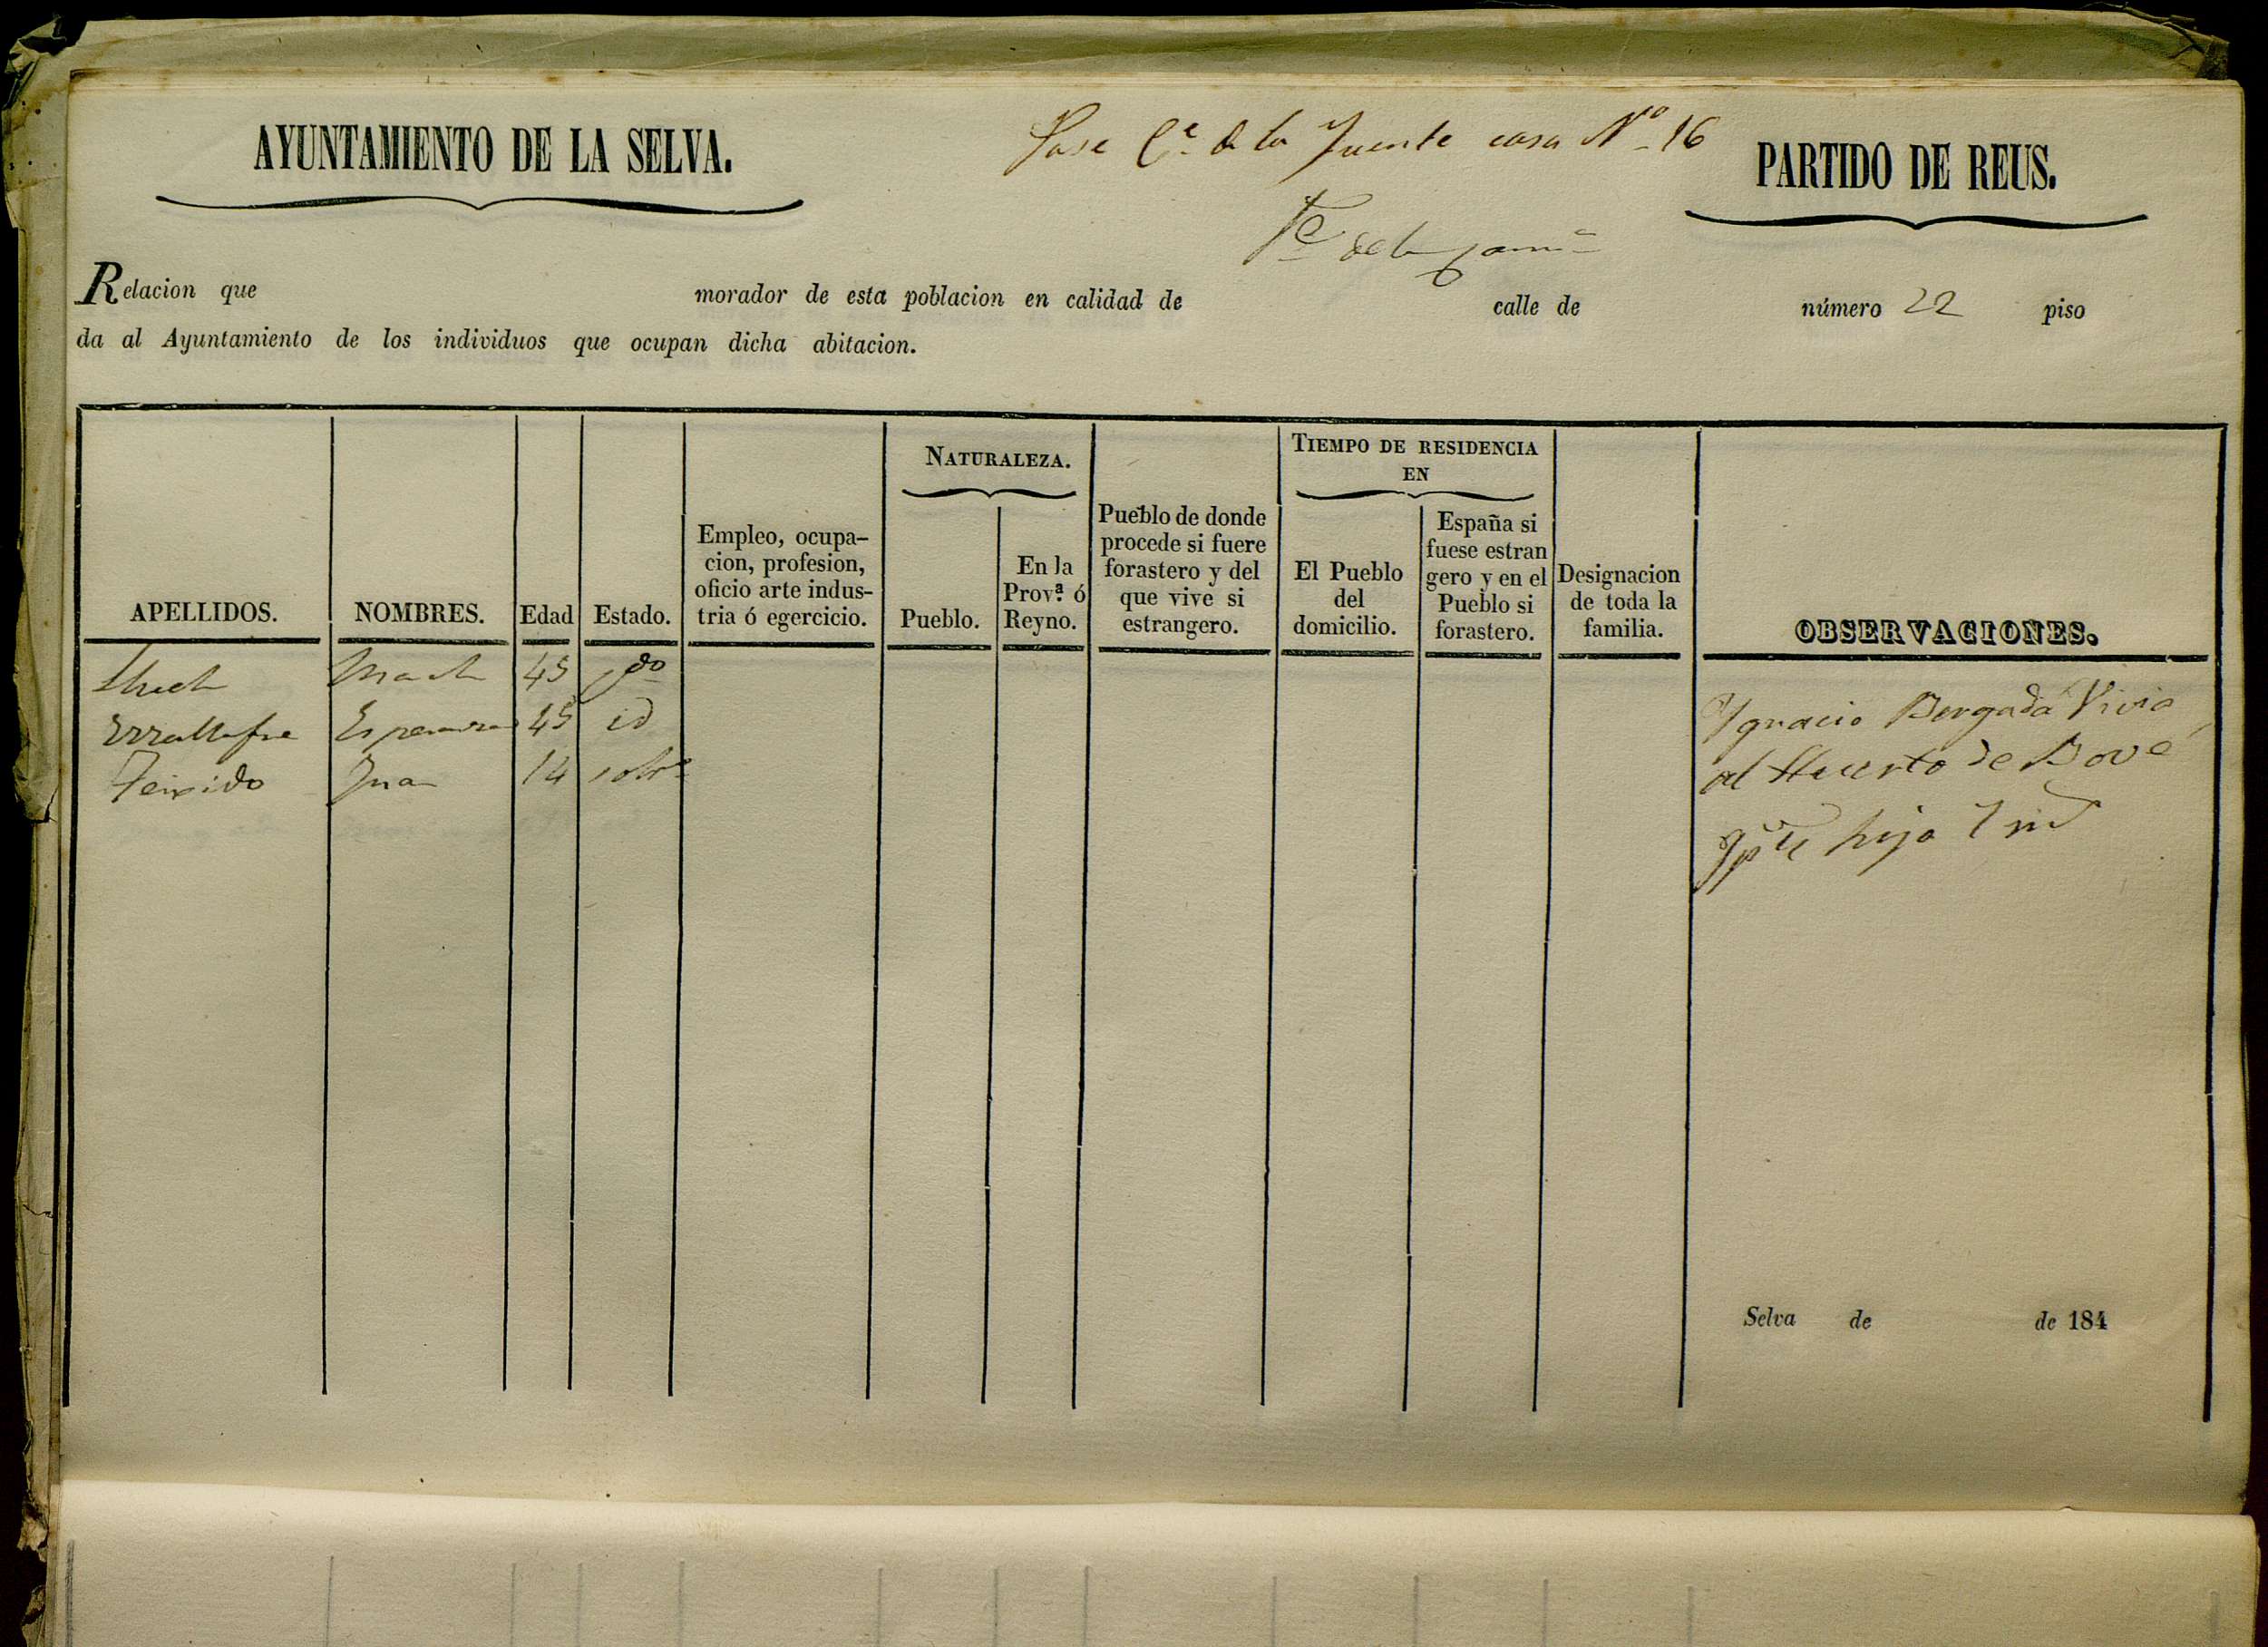 AYUNTAMIENTO DE LA SELVA.
Pase C.e de la Fuente casa Nº 16
PARTIDO DE REUS.
Relacion que morador de esta poblacion en calidad de calle de número 22 piso
da al Ayuntamiento de los individuos que ocupan dicha abitacion.
APELLIDOS.
NOMBRES.
Edad
Estado.
Empleo, ocupa-
cion, profesion,
oficio arte indus-
tria ó egercicio.
NATURALEZA.
Pueblo.
En la
Prov.ª ó
Reyno.
Pueblo de donde
procede si fuere
forastero y del
que vive si
estrangero.
TIEMPO DE RESIDENCIA
EN
El Pueblo
del
domicilio.
España si
fuese estran
gero y en el
Pueblo si
forastero.
Designacion
de toda la
familia.
OBSERVACIONES.
45
Esperanza 45 id
Teixido Juan 14
Ygnacio Bergadá Vivia
al Huerto de Bové
hijo
Selva de de 184